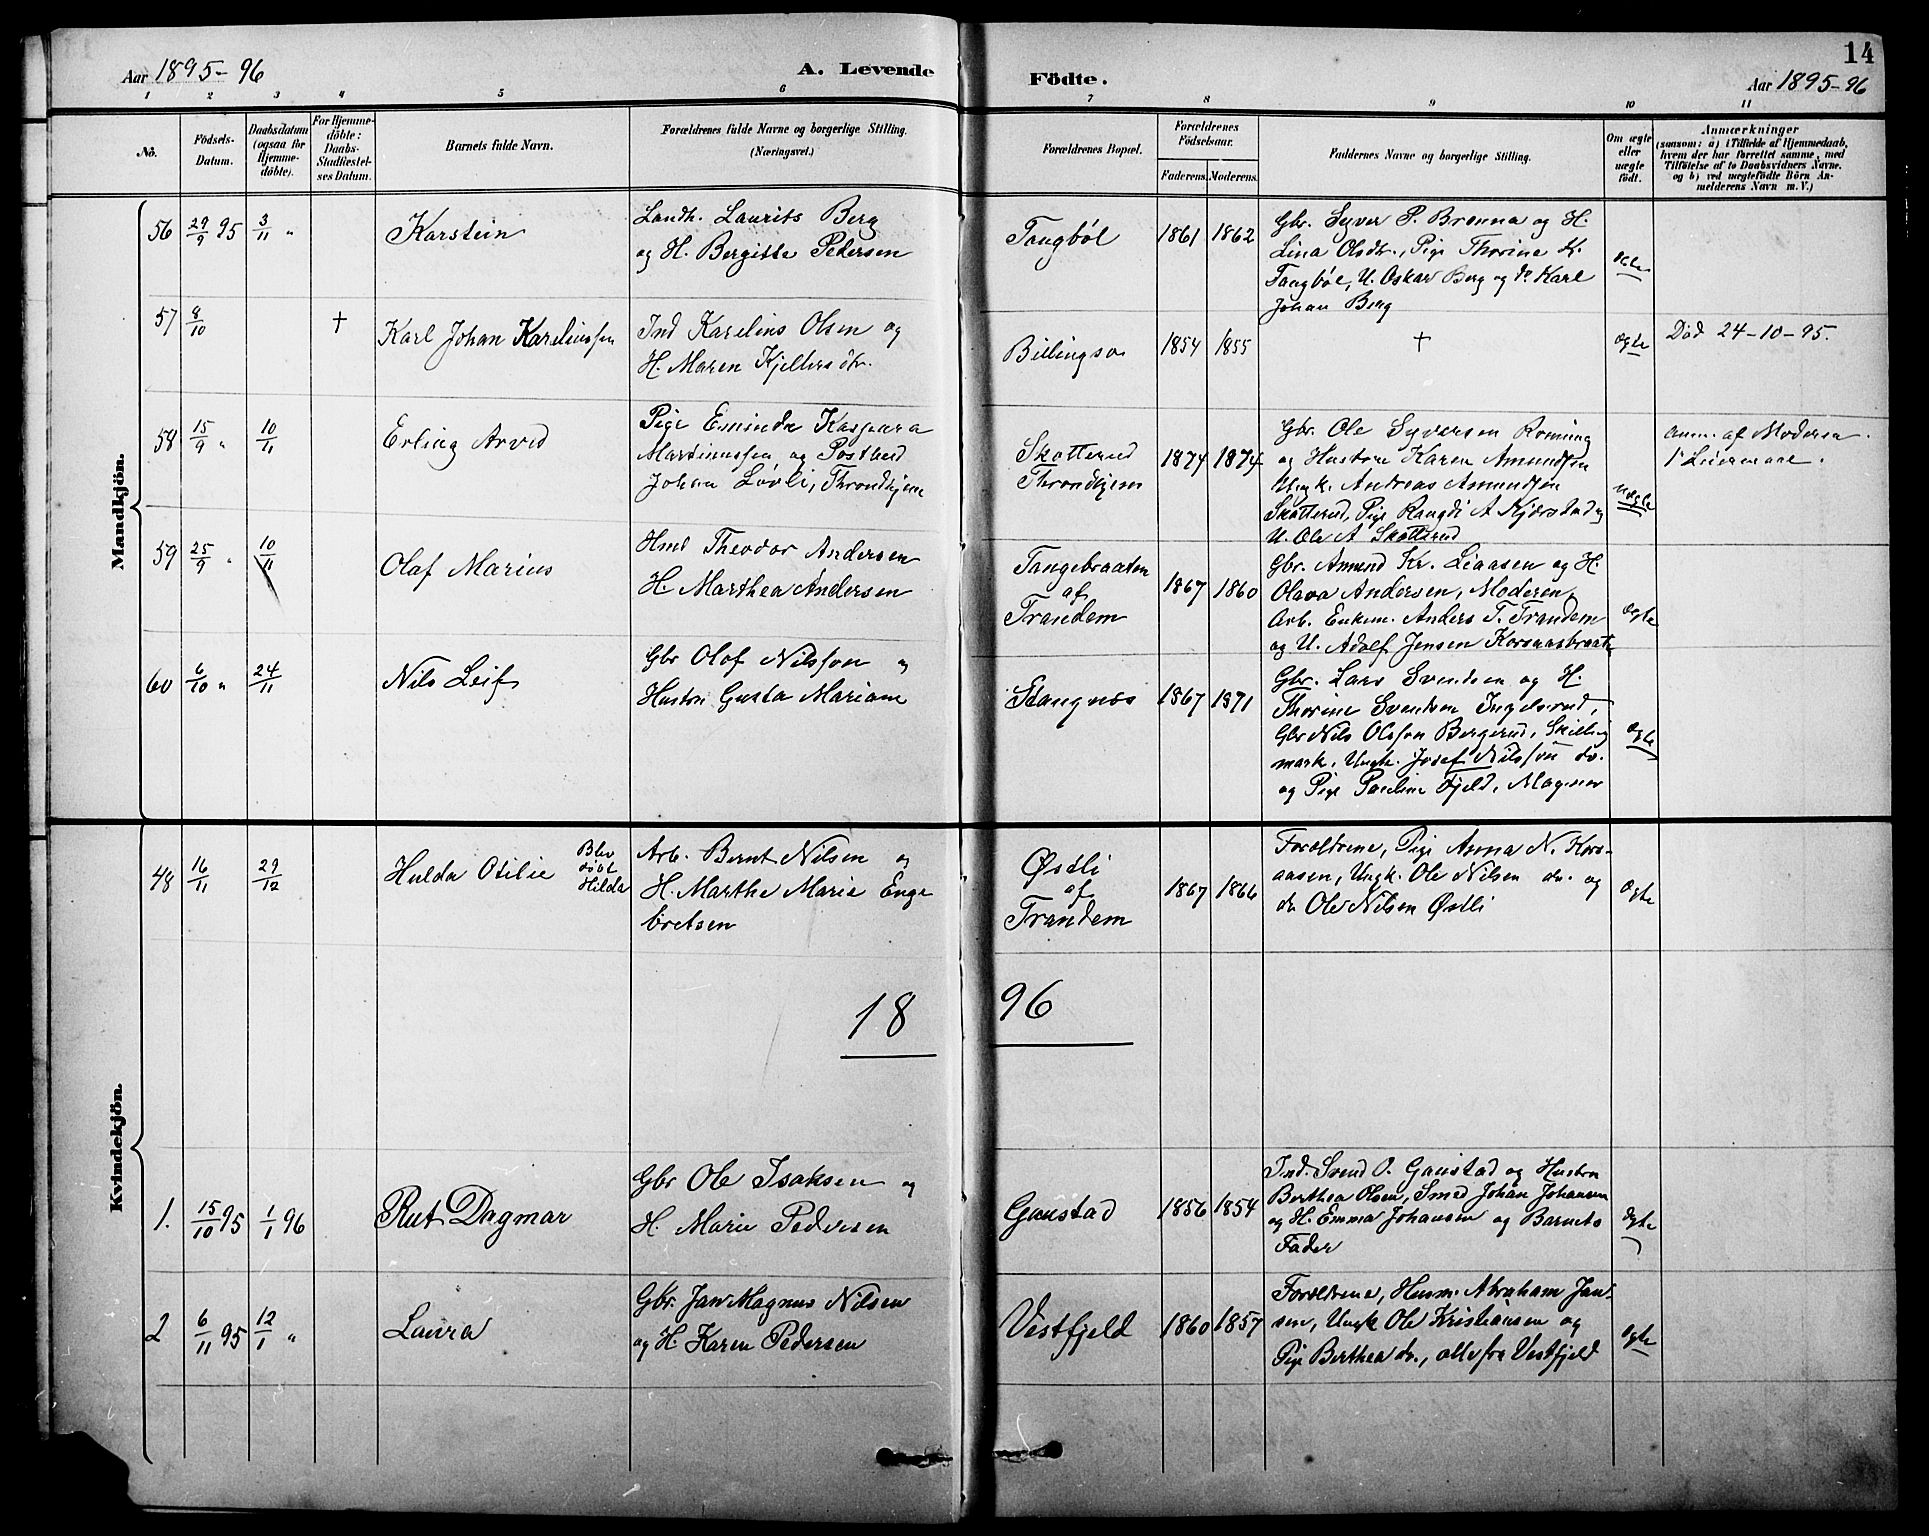 14
Aar 1895-96
A. Levende Födte.
Aar 1895-96
1 2 3 4 5 6 7 8 9 10 11
No.
Födsels-Datum.
Daabsdatum (ogsaa for Hjemme-döbte).
For Hjemme-döbte: Daabs-Stadfæstel-ses Datum.
Barnets fulde Navn.
Forældrenes fulde Navne og borgerlige Stilling.
(Næringsvei.)
Forældrenes Bopæl.
Forældrenes Födselsaar.
Faderens. Moderens.
Faddernes Navne og borgerlige Stilling.
Om ægte eller uægte födt.
Anmærkninger
(saasom: a) i Tilfælde af Hjemmedaab,
hvem der har forrettet samme, med
Tilföielse af to Daabsvidners Navne.
og b) ved uægtefödte Börn An-
melderens Navn m. V.)
Mandkjön.
56 29/9 95 3/11 "
Karstein
Landh. Laurits Berg
og H. Bergitte Pedersen
Tangbøl
1861 1862
Gbr. Syver P. Brenna og H.
Lina Olsdtr., Pige Thorine K.
Tangbøl, U. Oskar Berg og do Karl
Johan Berg
ægte
57 8/10 †
Karl Johan Kareliussen
Ind Karelius Olsen og
H. Maren Kjellersdtr.
1854 1855
†
ægte
Død 24-10-95.
58 15/9 " 10/11
Erling Arvid
Pige Eminda Kaspara
Martinussen og Postbud
Johan Løvli, Throndhjem
Skotterud
Throndhjem
1874 1874
Gbr. Ole Syversen Roming
og Hustru Karen Amundsen
Ungk. Andreas Amundsen
Skotterud, Pige Rangdi A Kjerstad og
U. Ole A Skotterud
uægte
Anm. af Moderen.
1ste Leiermaal.
59 25/9 " 10/11
Olaf Marius
Hmd Theodor Andersen
H. Marthea Andersen
Tangebraaten
af
Trandem
1867 1860
Gbr. Amund Kr. Liaasen og H.
Olava Andersen, Moderen,
Arb. Enkem. Anders T. Trandem
og U. Adolf Jensen Korsaasbraate
ægte
60 6/10 " 24/11
Nils Leif
Gbr Olof Nilsson og
Hustru Gusta Mariane
Stangnes
1867 1871
Gbr. Lars Svendsen og H.
Thorine Svendsen Ingelsrud,
Gbr Nils Olsson Bergerud, Skilling
mark, Ungk. Josef Nilsson do.
og Pige Pauline Fjeld, Magnor
ægte
Kvindekjön.
48 16/11 29/12
Hulda Otilie Blev
døbt
Hilda
Arb. Bernt Nilsen og
H. Marthe Marie Enge
bretsen
Østli
af
Trandem
1867 1866
Foroldrene, Pige Anna N. Kors-
aasen, Ungk. Ole Nilsen do. og
do Ole Nilsen Østli
ægte
18 96
1. 15/10 95 1/1 96
Rut Dagmar
Gbr Ole Isaksen og
H. Marie Pedersen
Gaustad
1856 1854
Ind. Svend O. Gaustad og Hustru
Berthea Olsen, Smed Johan Johansen
og H. Emma Johansen og Barnets
Fader
ægte
2 6/11 95 12/1 "
Laura
Gbr. Jan Magnus Nilsen
og H Karen Pedersen
Vestfjeld
1860 1857
Foroldrene, Husm. Abraham Jan-
sen, Ungk Ole Kristiansen og
Pige Berthea do., alle fra Vestfjeld
ægte